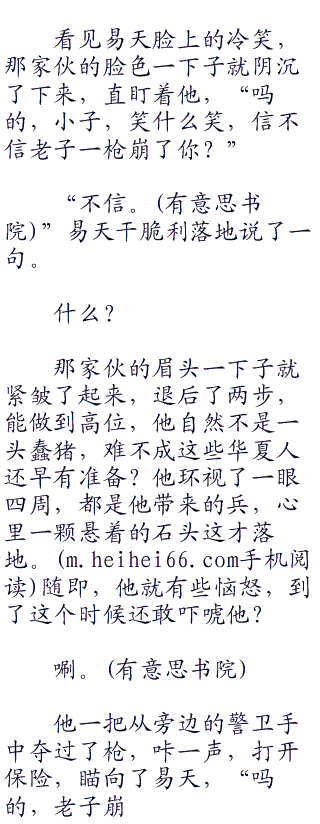 看见易天脸上的冷笑，
那家伙的脸色一下子就阴沉
了下来，直盯着他，“吗
的，小子，笑什么笑，信不
信老子一枪崩了你？”
“不信。(有意思书
院)”易天干脆利落地说了一
句。
什么？
那家伙的眉头一下子就
紧皱了起来，退后了两步，
能做到高位，他自然不是一
头蠢猪，难不成这些华夏人
还早有准备？他环视了一眼
四周，都是他带来的兵，心
里一颗悬着的石头这才落
地。(m.heihei66.com手机阅
读)随即，他就有些恼怒，到
了这个时候还敢吓唬他？
唰。(有意思书院)
他一把从旁边的警卫手
中夺过了枪，咔一声，打开
保险，瞄向了易天，“吗
的，老子崩